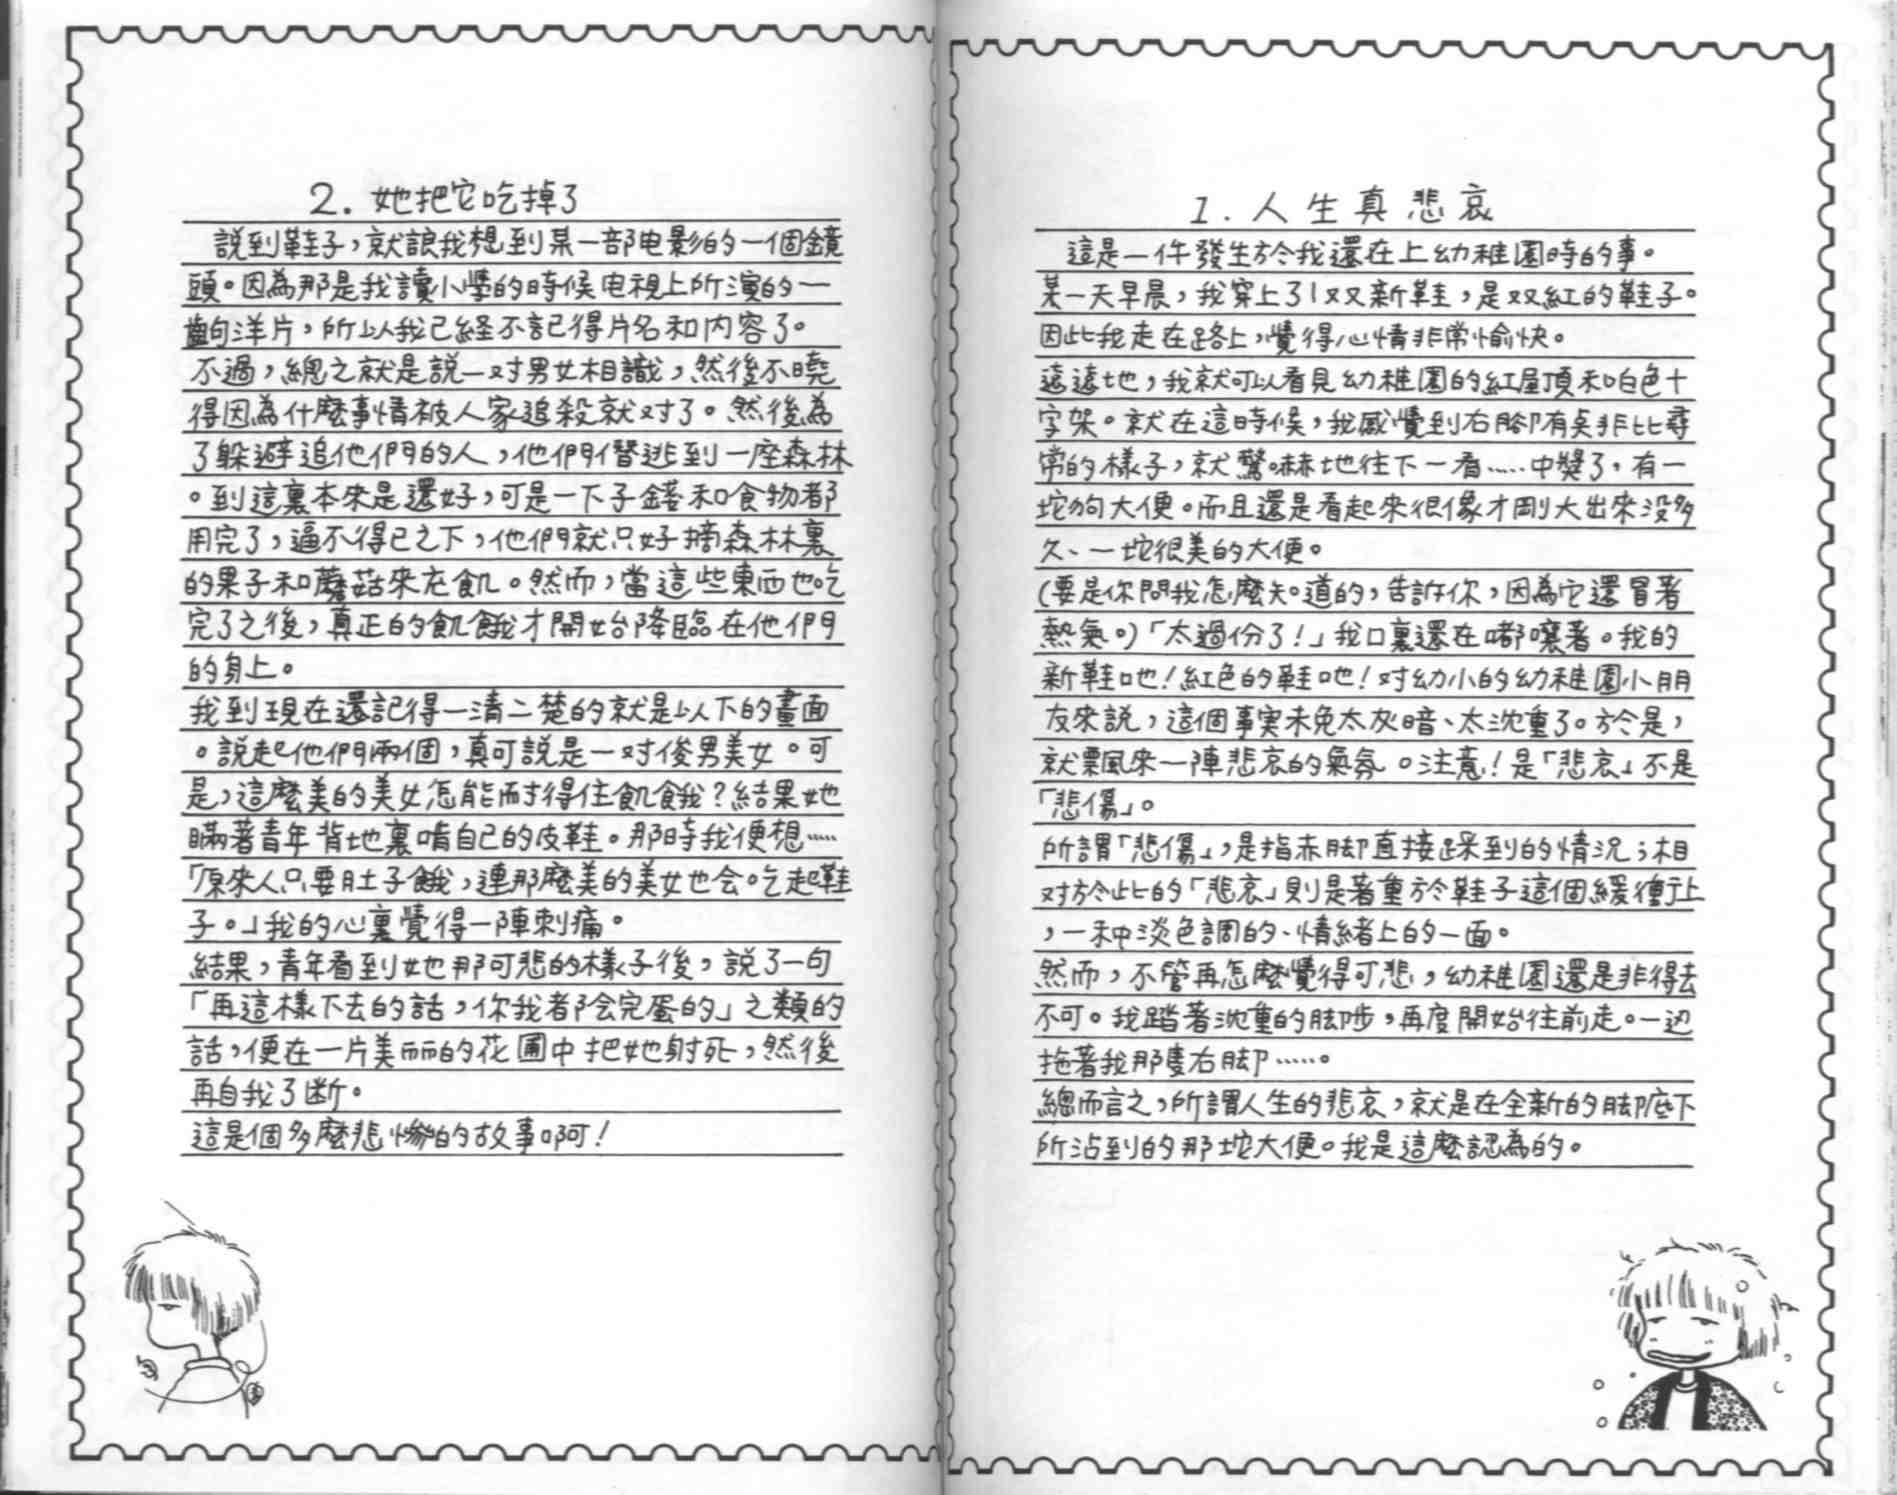 1. 人生真悲哀
這是一件發生於我還在上幼稚園時的事。
某一天早晨，我穿上了1双又新鞋，是双紅的鞋子。
因此我走在路上，覺得心情非常愉快。
遠遠地，我就可以看見幼稚園的紅屋頂和白色十
字架。就在這時候，我感覺到右脚有奌非比尋
常的樣子，就驚嚇地往下一看……中獎了，有一
坨狗大便。而且還是看起來很像才剛大出來没多
久、一坨很美的大便。
(要是你問我怎麼知道的，告訴你，因為它還冒著
熱氣。)「太過份了！」我口裏還在嘟嚷著。我的
新鞋吔！紅色的鞋吔！对幼小的幼稚園小朋
友來說，這個事実未免太灰暗、太沈重了。於是，
就飄來一陣悲哀的氣氛。注意！是「悲哀」不是
「悲傷」。
所謂「悲傷」，是指赤脚直接踩到的情況；相
对於此的「悲哀」則是著重於鞋子這個緩衝上
，一种淡色調的、情緒上的一面。
然而，不管再怎麼覺得可悲，幼稚園還是非得去
不可。我踏著沈重的脚步，再度開始往前走。一边
拖著我那隻右脚……。
總而言之，所謂人生的悲哀，就是在全新的脚底下
所沾到的那坨大便。我是這麼認為的。
2. 她把它吃掉了
說到鞋子，就讓我想到某一部电影的一個鏡
頭。因為那是我讀小學的時候电視上所演的一
齣洋片，所以我已経不記得片名和内容了。
不過，總之就是説一对男女相識，然後不曉
得因為什麼事情被人家追殺就对了。然後為
了躲避追他們的人，他們僭逃到一座森林
。到這裏本來是還好，可是一下子錢和食物都
用完了，逼不得已之下，他們就只好摘森林裏
的果子和蘑菇來充飢。然而，當這些東西也吃
完了之後，真正的飢餓才開始降臨在他們
的身上。
我到現在還記得一清二楚的就是以下的畫面
。說起他們兩個，真可説是一对俊男美女。可
是，這麼美的美女怎能耐得住飢餓？結果她
瞞著青年背地裏啃自己的皮鞋。那時我便想……
「原來人只要肚子餓，連那麼美的美女也会吃起鞋
子。」我的心裏覺得一陣刺痛。
結果，青年看到她那可悲的樣子後，説了一句
「再這樣下去的話，你我都会完蛋的」之類的
話，便在一片美丽的花圃中把她射死，然後
再自我了断。
這是個多麼悲慘的故事啊！